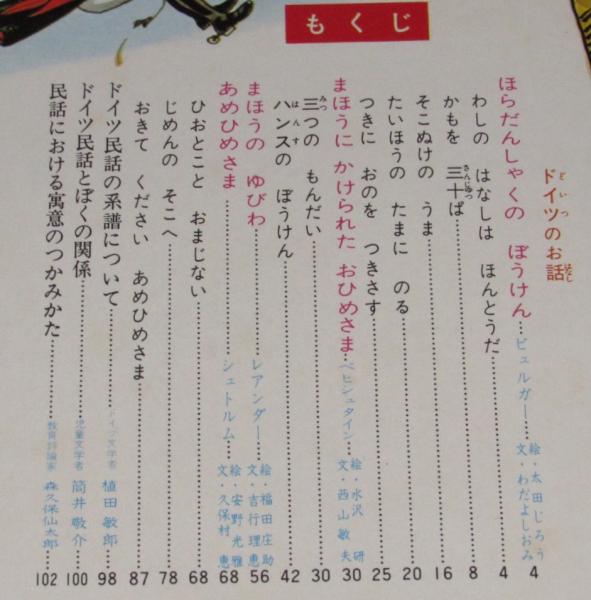 もくじ
ドイツのお話
ほらだんしゃくの ぼうけん…ビュルガー 絵・太田じろう 文・わだよしおみ 4
わしの はなしは ほんとうだ 4
かもを 三十ぱ 8
そこぬけの うま 16
たいほうの たまに のる 20
つきに おのを つきさす 25
まほうに かけられた おひめさま…ベヒシュタイン 絵・水沢 研 文・西山敏夫 30
三つの もんだい 30
ハンスの ぼうけん 42
まほうの ゆびわ…レアンダー 絵・福田庄助 文・吉行理恵 56
あめひめさま…シュトルム 絵・安野光雅 文・久保村 恵 68
ひおとこと おまじない 68
じめんの そこへ 78
おきて ください あめひめさま 87
ドイツ民話の系譜について…ドイツ文学者 植田敏郎 98
ドイツ民話とぼくの関係…児童文学者 筒井敬介 100
民話における寓意のつかみかた…教育評論家 森久保仙太郎 102